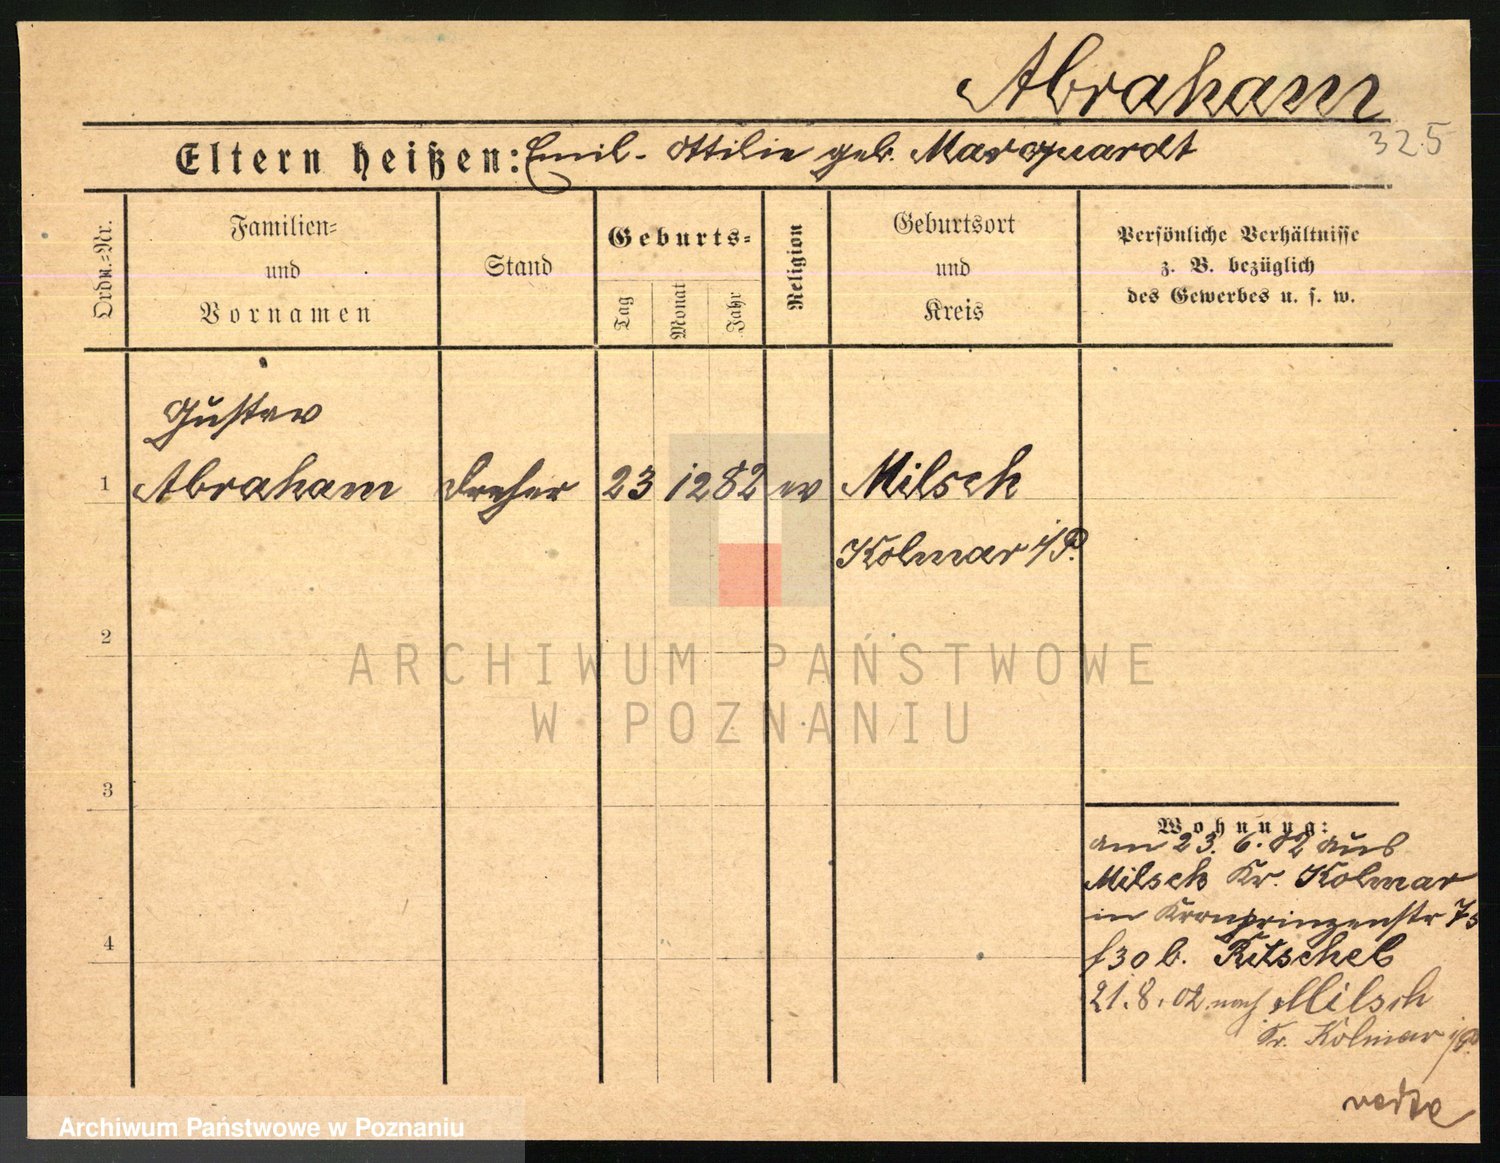 Abraham
325
Eltern heißen: Emil - Ottilie geb. Marquardt
Ordn.=Nr.
Familien=
und
Vornamen
Stand
Geburts=
Tag
Monat
Jahr
Religion
Geburtsort
und
Kreis
Persönliche Verhältnisse
z. B. bezüglich
des Gewerbes u. s. w.
Gustav
1 Abraham Dreher 23 12 82 ev Milsch
Kolmar i/P.
2
ARCHIWUM PAŃSTWOWE
W POZNANIU
3
Wohnung:
am 23. 6. 02 aus
Milsch Kr. Kolmar
in Kronprinzenstr
4
b. Kitschel
21. 8. 02 nach Milsch
Kr. Kolmar i/P.
Archiwum Państwowe w Poznaniu